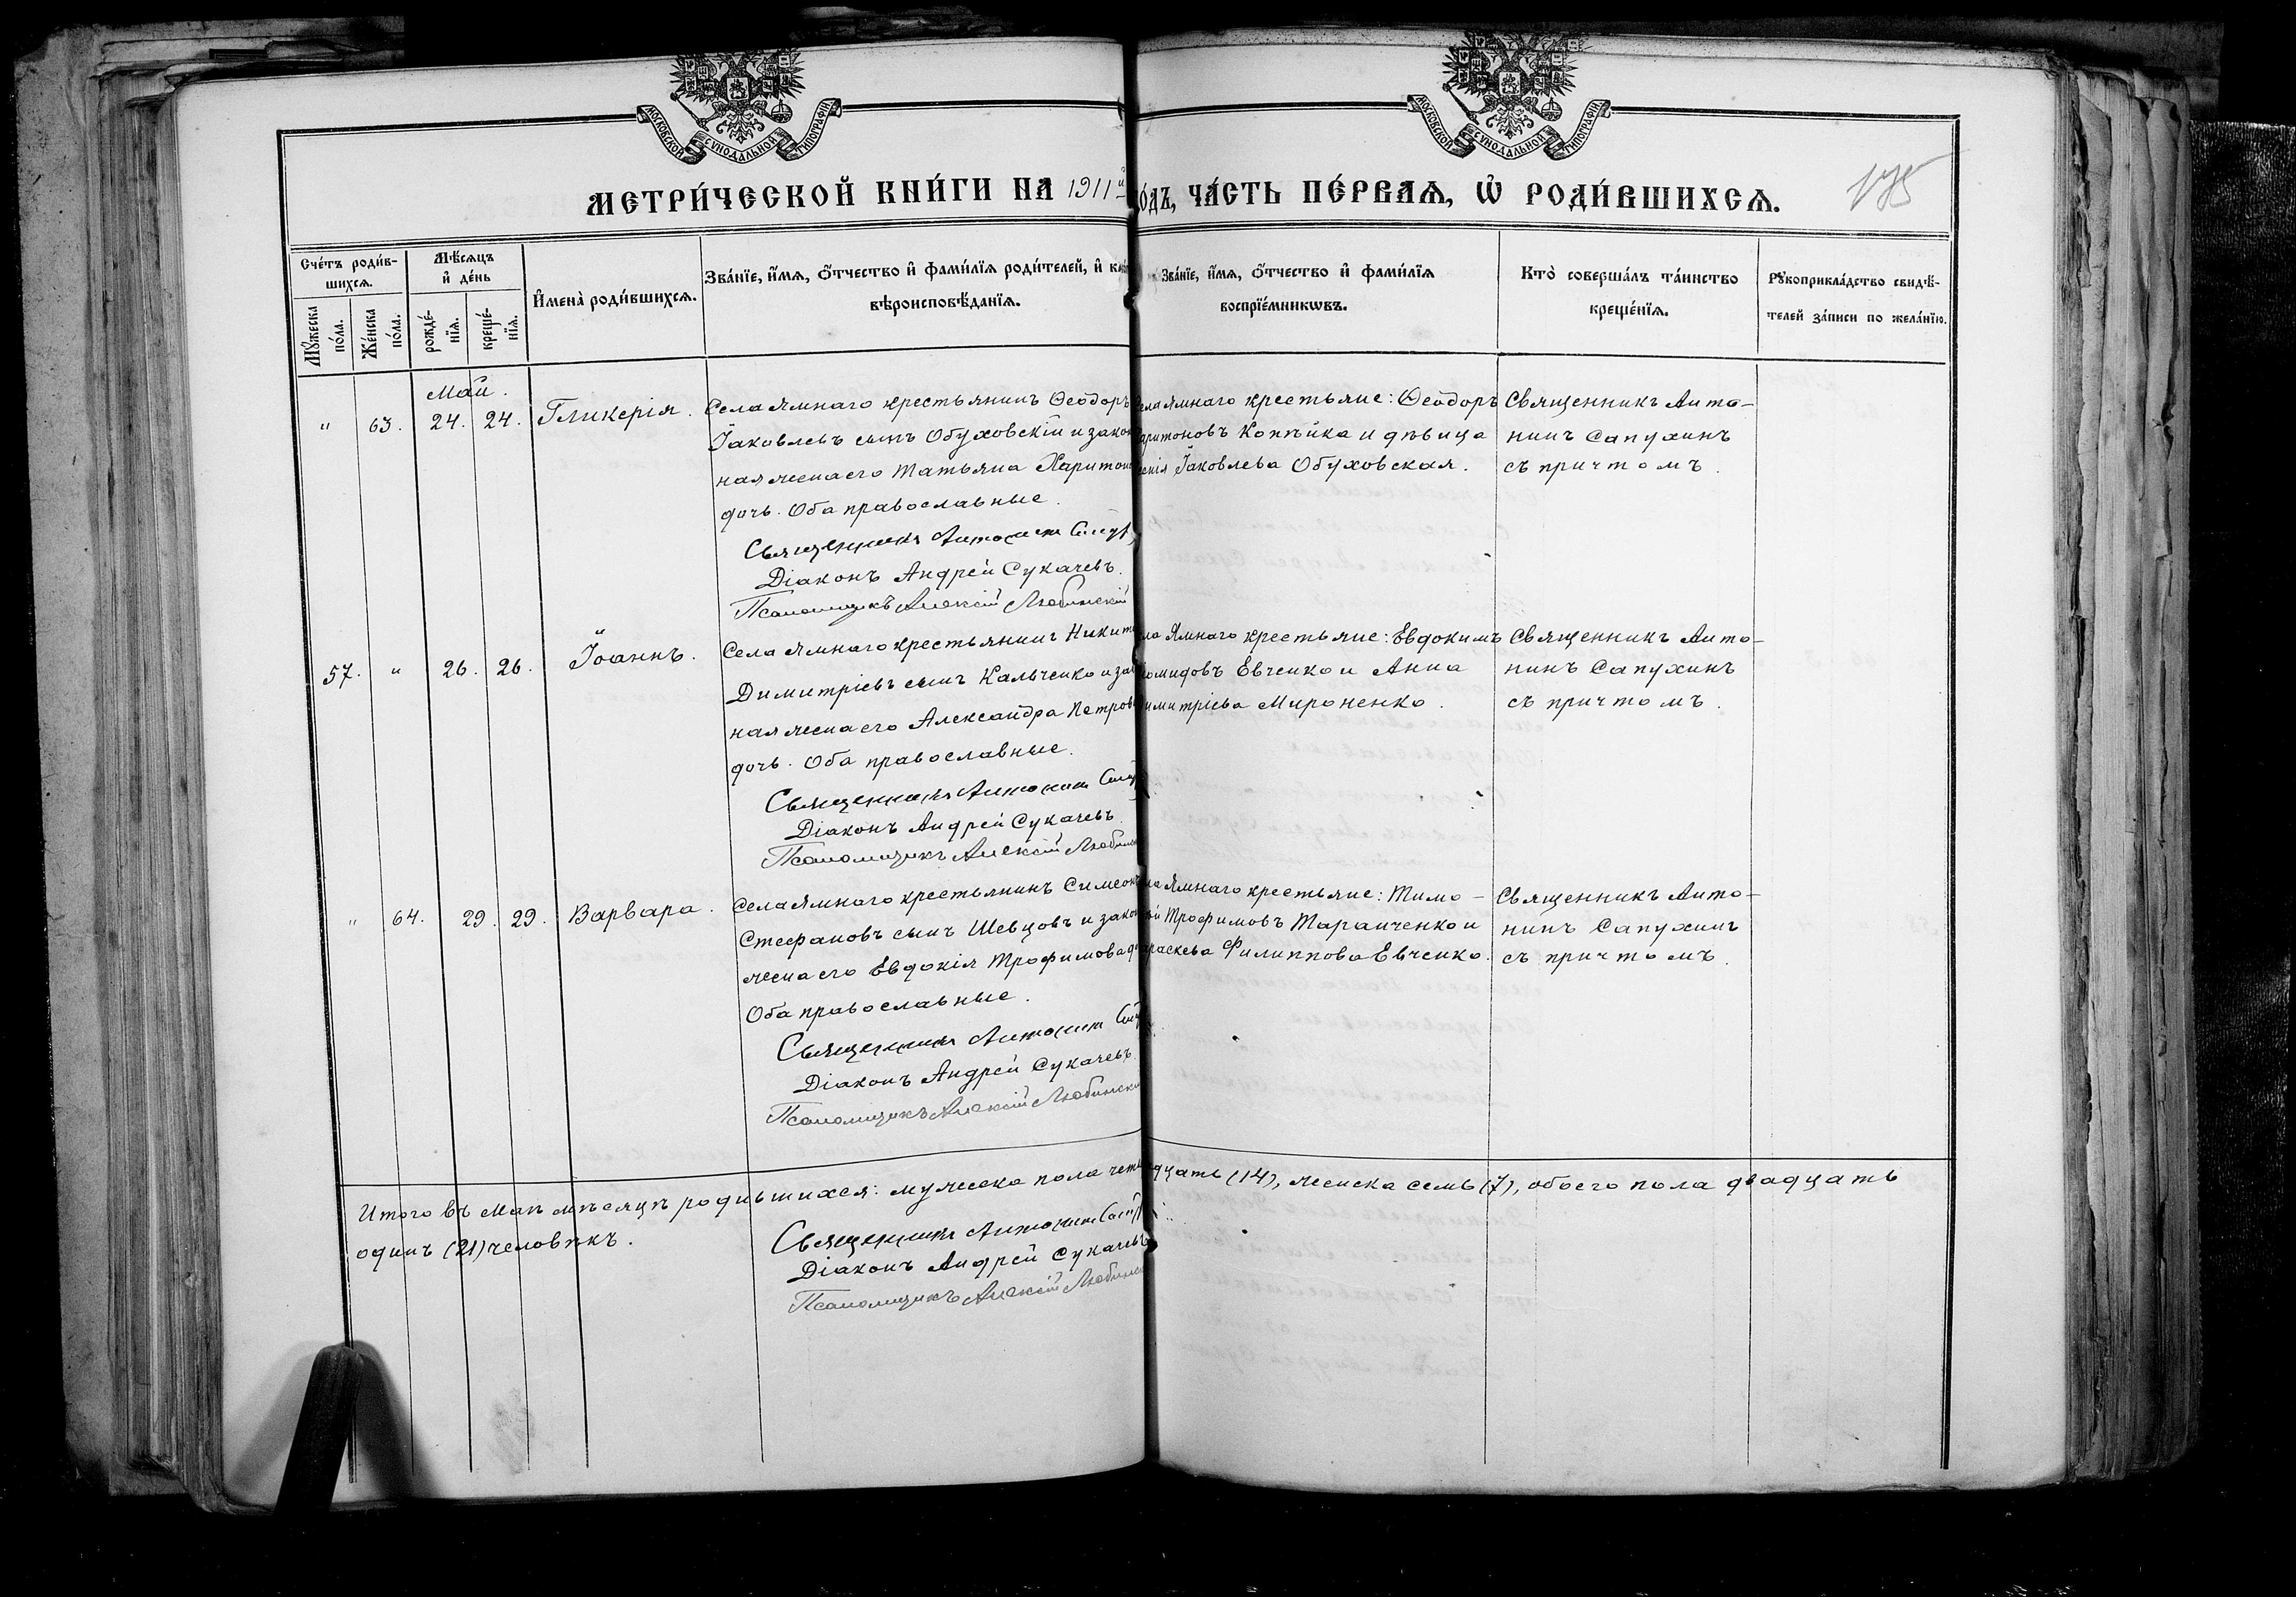 МОСКОВСКОЙ СУНОДАЛЬНОЙ ТИПОГРАФIИ
МОСКОВСКОЙ СУНОДАЛЬНОЙ ТИПОГРАФIИ
МЕТРИ́ЧЕСКОЙ КНИ́ГИ НА 1911й
о́дъ, ЧА́СТЬ ПЕ́РВАѦ, Ѿ РОДИ́ВШИХСѦ.
Сче́тъ роди́в-
шихсѧ.
Мꙋ́жеска по́ла.
Же́нска по́ла.
Мѣ́сѧцъ
и҆ де́нь
рожде́-
нїѧ.
креще́-
нїѧ.
И҆мена̀ роди́вшихсѧ.
Зва́нїе, и҆́мѧ, ѻ҆́тчество и҆ фами́лїѧ роди́телей, и҆
вѣроисповѣ́данїѧ.
Зва́нїе, и҆́мѧ, ѻ҆́тчество и҆ фами́лїѧ
воспрїе́мникѡвъ.
Кто̀ соверша́лъ та́инство
креще́нїѧ.
Рꙋкоприкла́дство свидѣ́-
телей за́писи по жела́нїю.
Май.
" 63. 24. 24. Гликерія.
Села Ямнаго крестьянинъ Ѳеодоръ
Іаковлевъ сынъ Обуховскій и закон
ная жена его Татьяна Харитон
дочь. Оба православные.
Священникъ Антонинъ Сапух
Діаконъ Андрей Сукачевъ.
Псаломщикъ Алексій Любинскій
ела Ямнаго крестьяне: Ѳеодоръ
аритоновъ Копѣйка и дѣвица
Іаковлева Обуховская.
Священникъ Анто-
нинъ Сапухинъ
съ причтомъ.
57. " 26. 26. Іоаннъ.
Села Ямнаго крестьянинъ Никита
Димитріевъ сынъ Кальченко и зак
ная жена его Александра Петров
дочь. Оба православные.
Священникъ Антонинъ Сапу
Діаконъ Андрей Сукачевъ.
Псаломщикъ Алексій Любинск
ла Ямнаго крестьяне: Евдокимъ
омидовъ Евченко и Анна
имитріева Мироненко.
Священникъ Анто-
нинъ Сапухинъ
съ причтомъ.
" 64. 29. 29. Варвара.
Села Ямнаго крестьянинъ Симеонъ
Стефановъ сынъ Шевцовъ и закон
жена его Евдокія Трофимова д
Оба православные.
Священникъ Антонинъ Сапу
Діаконъ Андрей Сукачевъ.
Псаломщикъ Алексій Любинскі
ла Ямнаго крестьяне: Тимо-
ей Трофимовъ Таранченко и
араскева Филиппова Евченко.
Священникъ Анто-
нинъ Сапухинъ
съ причтомъ.
Итого въ маѣ мѣсяцѣ родившихся: мужеска пола четырнадцать (14), женска семь (7), обоего пола двадцать
одинъ (21) человѣкъ.
Священникъ Антонинъ Сапух
Діаконъ Андрей Сукачевъ
Псаломщикъ Алексій Любинск